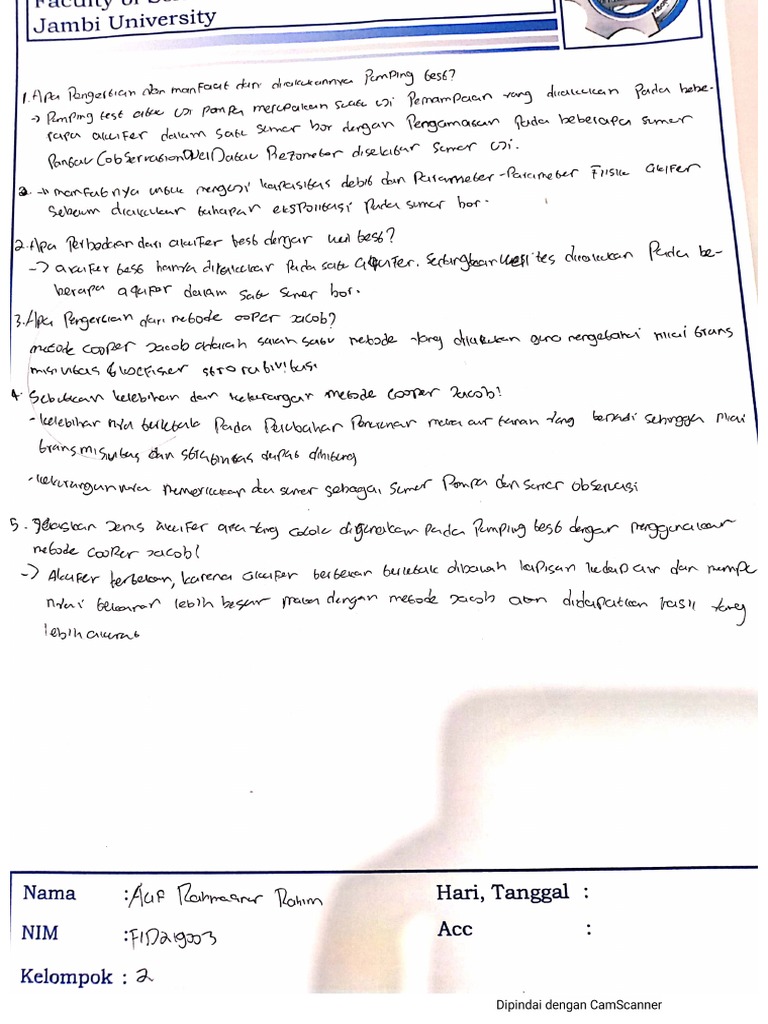 Faculty of
Jambi University
1. Apa Pengertian dan manfaat dari dilakukannya Pumping test?
→ Pumping test atau uji pompa merupakan suatu uji Pemompaan yang dilakukan Pada bebe-
rapa akuifer dalam satu sumur bor dengan Pengamatan Pada beberapa sumur
Pantau (observation Well) atau Piezometer disekitar sumur uji.
2. → manfaatnya untuk menguji kapasitas debit dan Parameter-Parameter Fisik akifer
Sebelum dilakukan tahapan eksploitasi Pada sumur bor.
2. Apa Perbedaan dari akuifer test dengan well test?
→ akuifer test hanya dilakukan Pada satu aquifer. Sedangkan well tes dilakukan Pada be-
berapa aquifer dalam satu sumur bor.
3. Apa Pengertian dari metode cooper jacob?
metode cooper jacob adalah salah satu metode yang dilakukan guna mengetahui nilai trans
misivitas
4. Sebutkan kelebihan dan kekurangan metode cooper Jacob!
- kelebihan nya terletak Pada Perubahan Penurunan muka air tanah yang terjadi sehingga nilai
transmisivitas dan dapat dihitung
- kekurangannya memerlukan dua sumur sebagai sumur Pompa dan sumur observasi
5. Jelaskan Jenis akuifer apa yang cocok digunakan pada Pumping test dengan menggunakan
metode cooper jacob!
→ Akuifer tertekan, karena akuifer tertekan terletak dibawah lapisan kedap air dan mempu
nyai tekanan lebih besar maka dengan metode jacob akan didapatkan hasil yang
lebih akurat
Nama : Rahim
Hari, Tanggal :
NIM : F1D219003
Acc :
Kelompok : 2
Dipindai dengan CamScanner